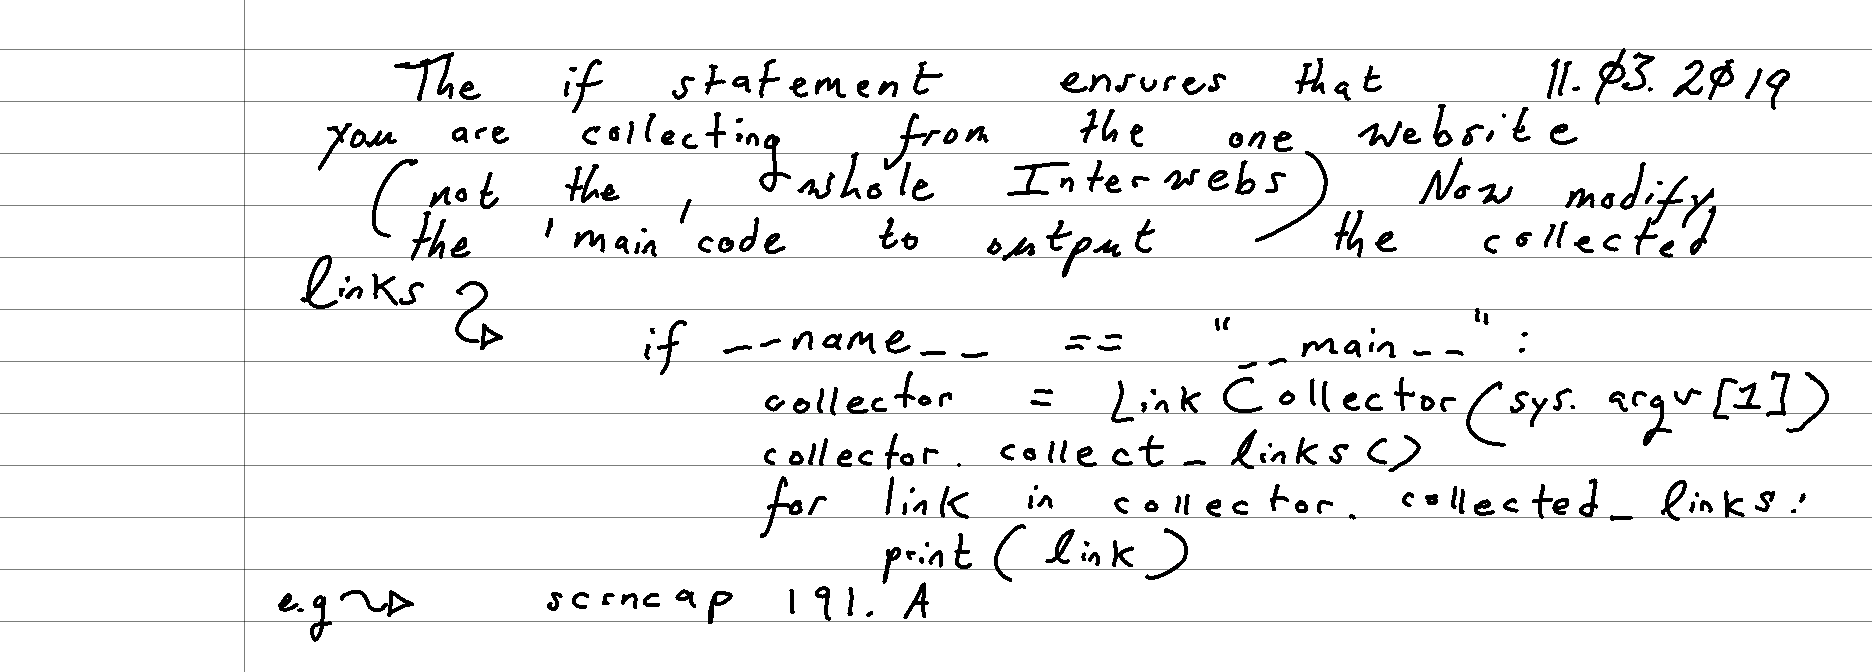 The if statement ensures that 11.Ø3.2Ø19
you are collecting from the one website
(not the whole Interwebs) Now modify
the 'main' code to output the collected
links
if __name__ == "__main__":
collector = LinkCollector(sys.argv[1])
collector.collect_links()
for link in collector.collected_links:
print(link)
e.g scrncap 191.A